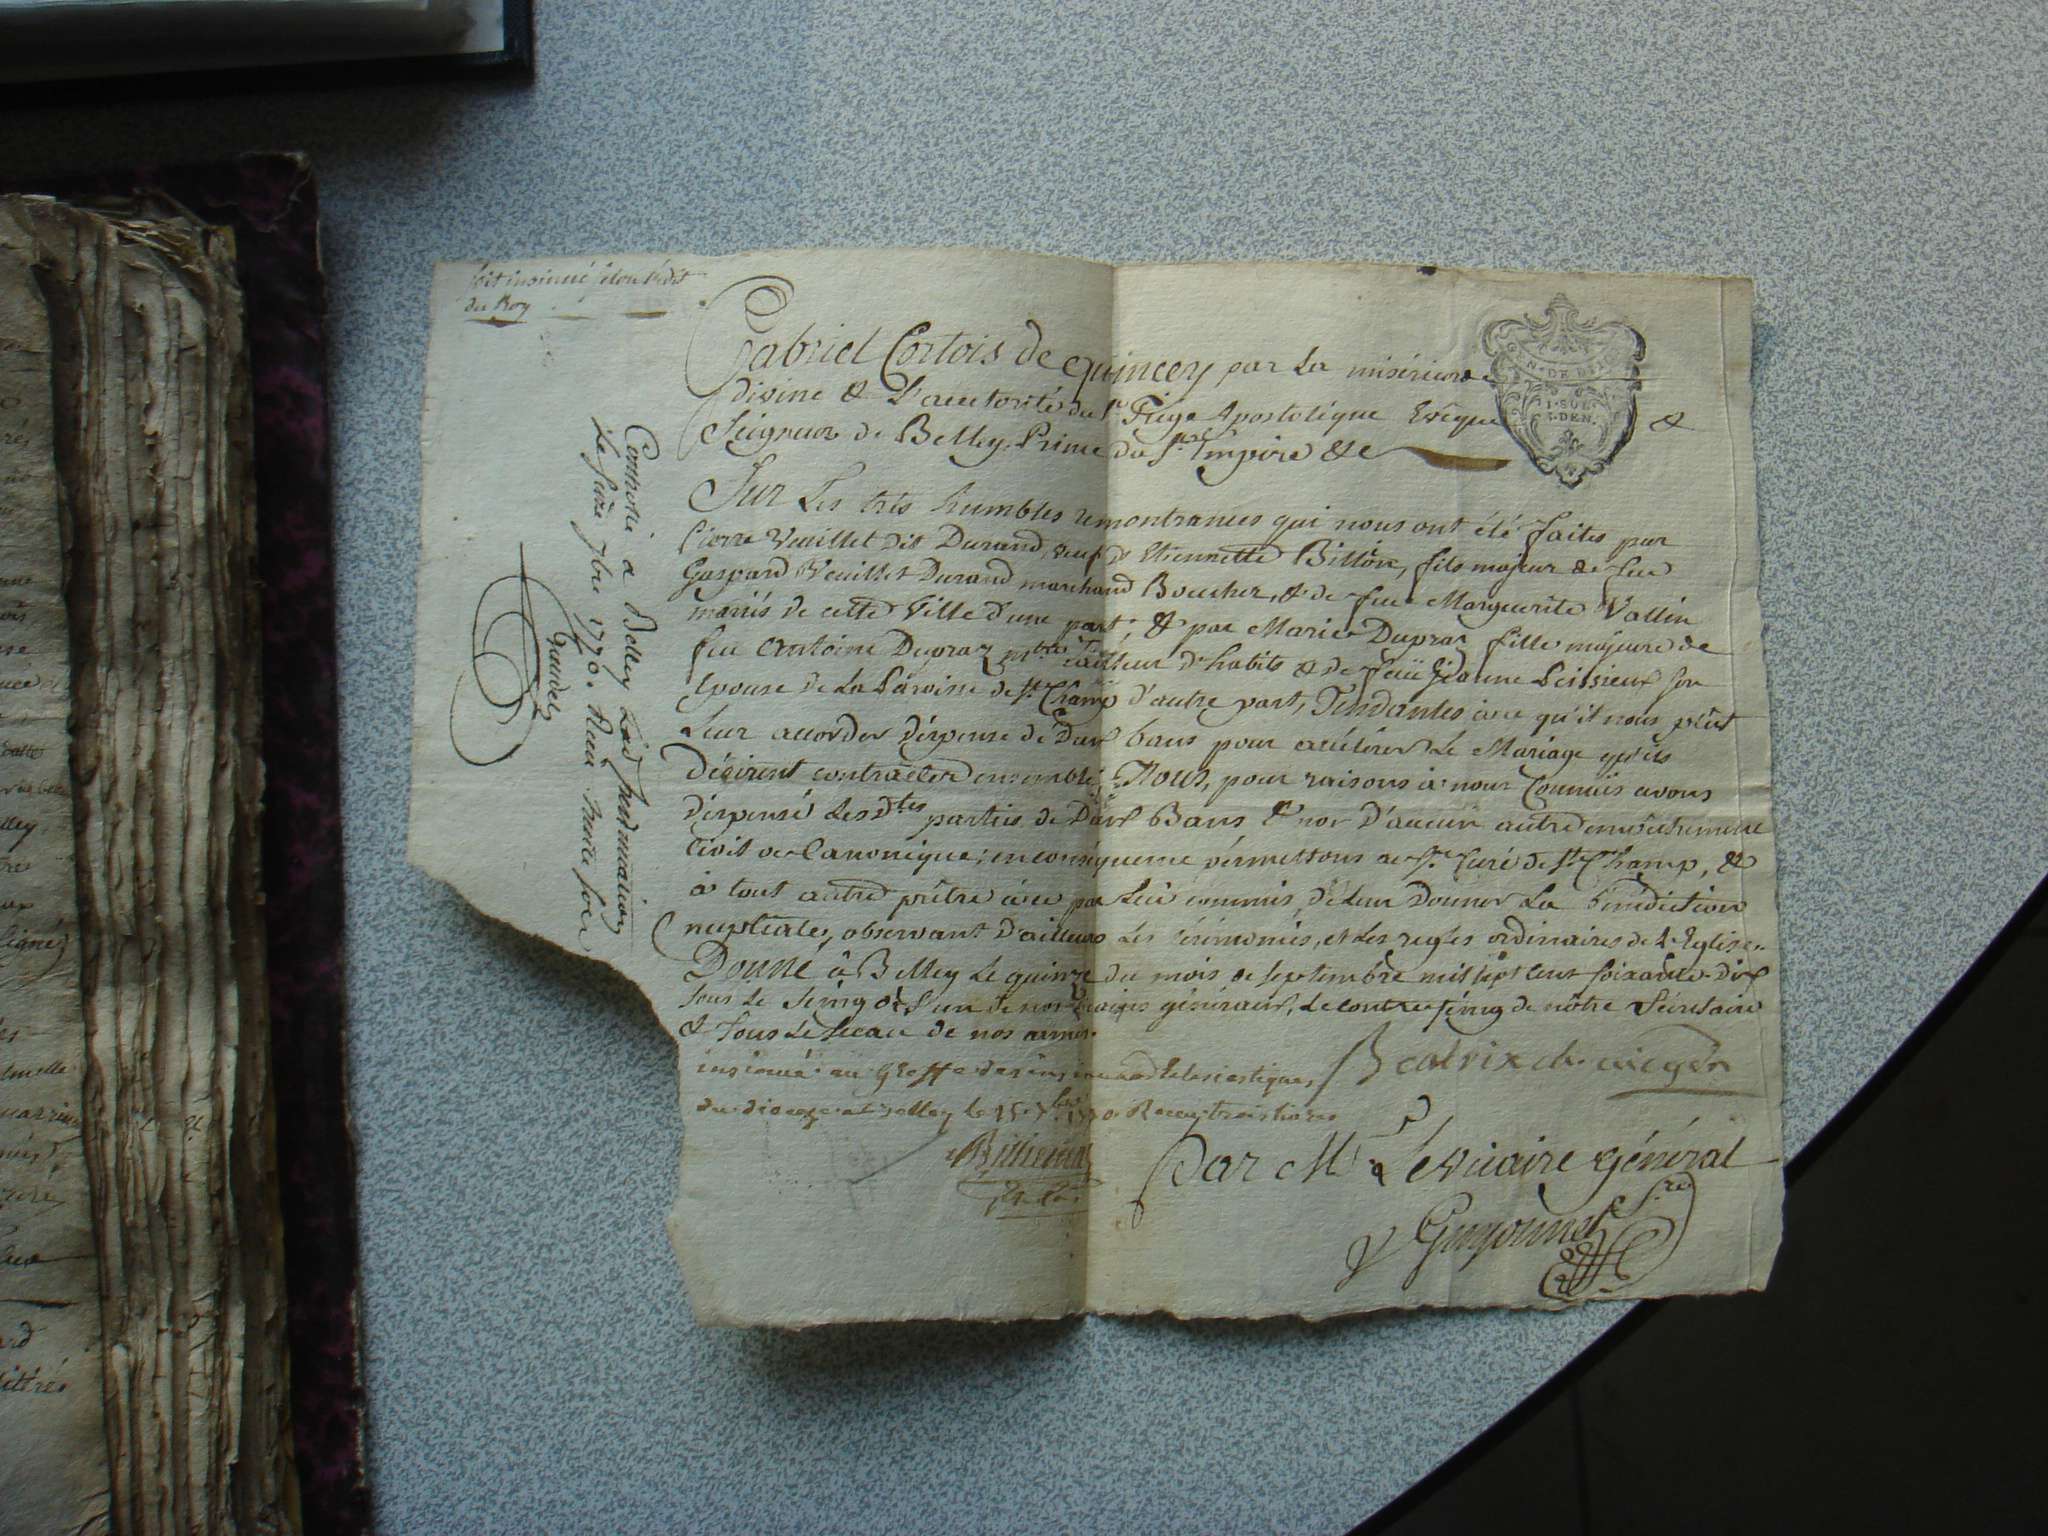 soit insinué selon l'édit
du Roy
Gabriel Cortois de Quincey par La miséricorde
divine & L'auctorité du St Siége Apostolique Evêque &
Seigneur de Belley, Prince du St Empire &c
GEN. DE
1. SOL
DEN.
Sur Les très humbles remontrances qui nous ont été faites par
Pierre Veuillet dit Durand, veuf d'Etiennette Billion, fils majeur de feu
Gaspard Veuillet Durand marchand Boucher, & de feue Marguerite Vallin
mariés de cette Ville d'une part; & par Marie Dupraz fille majeure de
feu Antoine Dupraz mtre Tailleur d'habits & de feuë Jeanne Peissieux son
Epouse de La Paroisse de St Champ d'autre part, Tendantes à ce qu'il nous plût
Leur accorder dispense de Deux bans pour accélérer Le Mariage qu'ils
Désirent contracter ensemble; Nous, pour raisons à nous Connuës avons
dispensé Lesdtes parties de Deux Bans & non D'aucun autre empêchement
Civil ou Canonique; en conséquence permettons au Sr Curé de St Champ, &
à tout autre prêtre à ce par Lui commis, de Leur Donner La Bénédiction
nuptiale, observant D'ailleurs Les cérémonies, et Les regles ordinaires de L'Eglise.
Donné à Belley Le quinze du mois de septembre mil sept cent soixante-dix
sous Le seing de L'un de nos vicaires généraux, Le contre-seing de nôtre Sécrétaire
& sous Le sceau de nos armes.
insinué au Greffe des insinuaõns Eclesiastiques
du diocèze de Belley le 15 7bre 1770 Receu trois livres
Par Mr Le Vicaire général
Guyonnet Sre
Controlé a Belley
Le seize 7bre 1770. Reçu